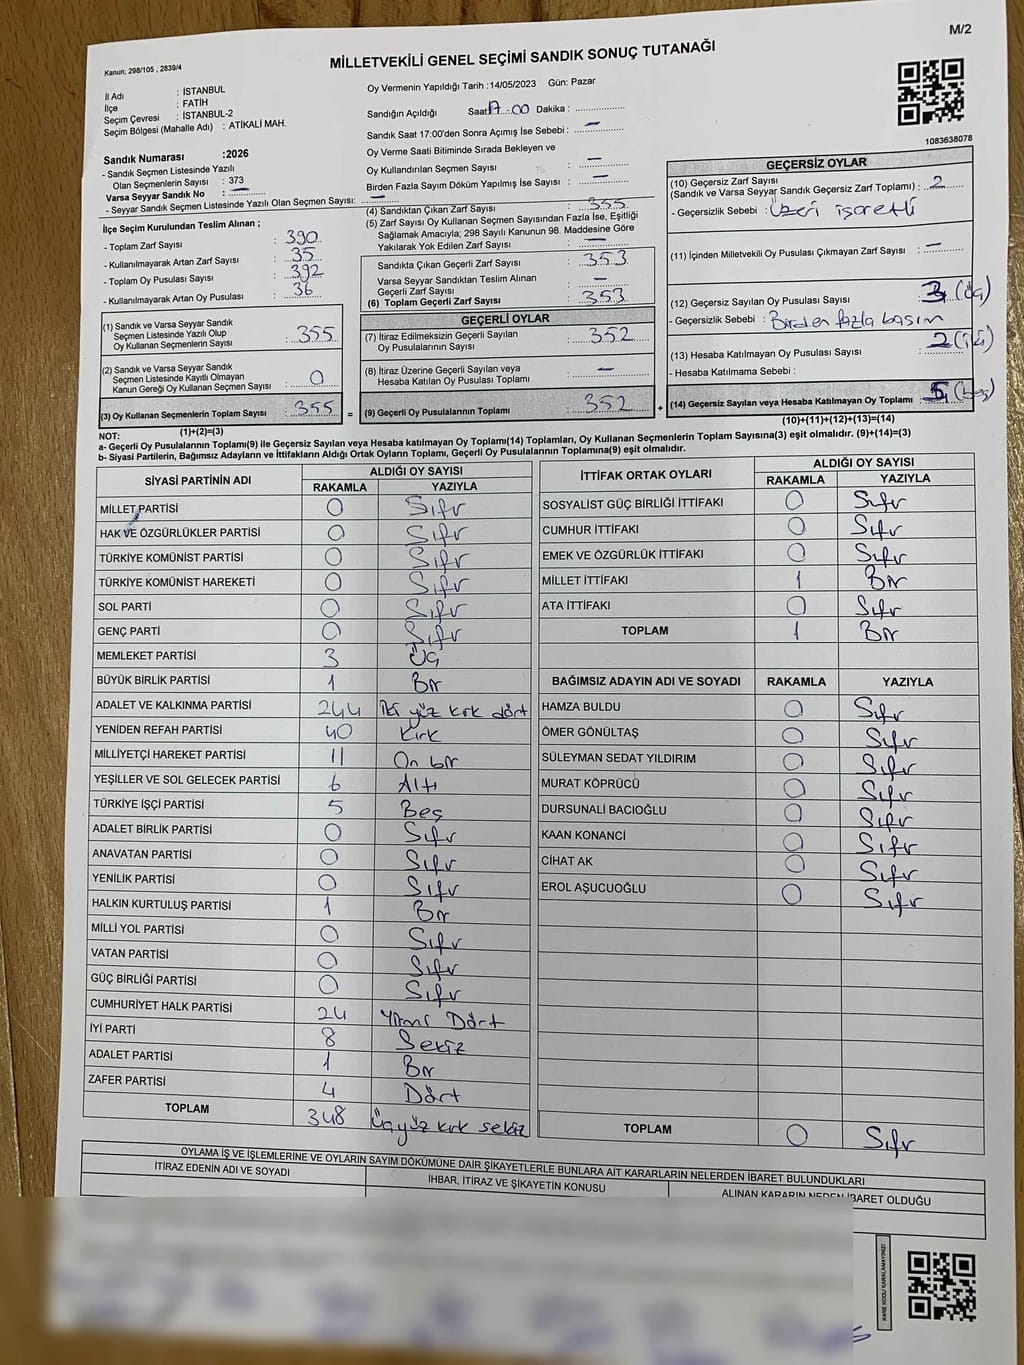 M/2
Kanun; 298/105 , 2839/4
MİLLETVEKİLİ GENEL SEÇİMİ SANDIK SONUÇ TUTANAĞI
İl Adı : İSTANBUL
İlçe : FATİH
Seçim Çevresi : İSTANBUL-2
Seçim Bölgesi (Mahalle Adı) : ATİKALİ MAH.
Sandık Numarası :2026
- Sandık Seçmen Listesinde Yazılı
Olan Seçmenlerin Sayısı : 373
Varsa Seyyar Sandık No : —
- Seyyar Sandık Seçmen Listesinde Yazılı Olan Seçmen Sayısı: —
Oy Vermenin Yapıldığı Tarih :14/05/2023 Gün: Pazar
Sandığın Açıldığı Saat 17:00 Dakika :
Sandık Saat 17:00'den Sonra Açımış İse Sebebi : —
Oy Verme Saati Bitiminde Sırada Bekleyen ve
Oy Kullandırılan Seçmen Sayısı : —
Birden Fazla Sayım Döküm Yapılmış İse Sayısı : —
1083638078
İlçe Seçim Kurulundan Teslim Alınan ;
- Toplam Zarf Sayısı : 390
- Kullanılmayarak Artan Zarf Sayısı : 35
- Toplam Oy Pusulası Sayısı : 392
- Kullanılmayarak Artan Oy Pusulası : 36
(1) Sandık ve Varsa Seyyar Sandık
Seçmen Listesinde Yazılı Olup
Oy Kullanan Seçmenlerin Sayısı : 355
(2) Sandık ve Varsa Seyyar Sandık
Seçmen Listesinde Kayıtlı Olmayan
Kanun Gereği Oy Kullanan Seçmen Sayısı : 0
(3) Oy Kullanan Seçmenlerin Toplam Sayısı : 355 =
(1)+(2)=(3)
(4) Sandıktan Çıkan Zarf Sayısı : 355
(5) Zarf Sayısı Oy Kullanan Seçmen Sayısından Fazla İse, Eşitliği
Sağlamak Amacıyla; 298 Sayılı Kanunun 98. Maddesine Göre
Yakılarak Yok Edilen Zarf Sayısı : —
Sandıkta Çıkan Geçerli Zarf Sayısı : 353
Varsa Seyyar Sandıktan Teslim Alınan
Geçerli Zarf Sayısı : —
(6) Toplam Geçerli Zarf Sayısı : 353
GEÇERLİ OYLAR
(7) İtiraz Edilmeksizin Geçerli Sayılan
Oy Pusulalarının Sayısı : 352
(8) İtiraz Üzerine Geçerli Sayılan veya
Hesaba Katılan Oy Pusulası Toplamı : —
(9) Geçerli Oy Pusulalarının Toplamı : 352 +
GEÇERSİZ OYLAR
(10) Geçersiz Zarf Sayısı
(Sandık ve Varsa Seyyar Sandık Geçersiz Zarf Toplamı) : 2
- Geçersizlik Sebebi : Üzeri işaretli
(11) İçinden Milletvekili Oy Pusulası Çıkmayan Zarf Sayısı : —
(12) Geçersiz Sayılan Oy Pusulası Sayısı : 3 (üç)
- Geçersizlik Sebebi : Birden fazla basım
(13) Hesaba Katılmayan Oy Pusulası Sayısı : 2 (iki)
- Hesaba Katılmama Sebebi :
(14) Geçersiz Sayılan veya Hesaba Katılmayan Oy Toplamı : 5 (beş)
(10)+(11)+(12)+(13)=(14)
NOT:
a- Geçerli Oy Pusulalarının Toplamı(9) ile Geçersiz Sayılan veya Hesaba katılmayan Oy Toplamı(14) Toplamları, Oy Kullanan Seçmenlerin Toplam Sayısına(3) eşit olmalıdır. (9)+(14)=(3)
b- Siyasi Partilerin, Bağımsız Adayların ve İttifakların Aldığı Ortak Oyların Toplamı, Geçerli Oy Pusulalarının Toplamına(9) eşit olmalıdır.
SİYASİ PARTİNİN ADI ALDIĞI OY SAYISI
RAKAMLA YAZIYLA
MİLLET PARTİSİ 0 Sıfır
HAK VE ÖZGÜRLÜKLER PARTİSİ 0 Sıfır
TÜRKİYE KOMÜNİST PARTİSİ 0 Sıfır
TÜRKİYE KOMÜNİST HAREKETİ 0 Sıfır
SOL PARTİ 0 Sıfır
GENÇ PARTİ 0 Sıfır
MEMLEKET PARTİSİ 3 Üç
BÜYÜK BİRLİK PARTİSİ 1 Bir
ADALET VE KALKINMA PARTİSİ 244 İki yüz kırk dört
YENİDEN REFAH PARTİSİ 40 Kırk
MİLLİYETÇİ HAREKET PARTİSİ 11 On bir
YEŞİLLER VE SOL GELECEK PARTİSİ 6 Altı
TÜRKİYE İŞÇİ PARTİSİ 5 Beş
ADALET BİRLİK PARTİSİ 0 Sıfır
ANAVATAN PARTİSİ 0 Sıfır
YENİLİK PARTİSİ 0 Sıfır
HALKIN KURTULUŞ PARTİSİ 1 Bir
MİLLİ YOL PARTİSİ 0 Sıfır
VATAN PARTİSİ 0 Sıfır
GÜÇ BİRLİĞİ PARTİSİ 0 Sıfır
CUMHURİYET HALK PARTİSİ 24 Yirmi Dört
İYİ PARTİ 8 Sekiz
ADALET PARTİSİ 1 Bir
ZAFER PARTİSİ 4 Dört
TOPLAM 348 Üçyüz kırk sekiz
İTTİFAK ORTAK OYLARI ALDIĞI OY SAYISI
RAKAMLA YAZIYLA
SOSYALİST GÜÇ BİRLİĞİ İTTİFAKI 0 Sıfır
CUMHUR İTTİFAKI 0 Sıfır
EMEK VE ÖZGÜRLÜK İTTİFAKI 0 Sıfır
MİLLET İTTİFAKI 1 Bir
ATA İTTİFAKI 0 Sıfır
TOPLAM 1 Bir
BAĞIMSIZ ADAYIN ADI VE SOYADI RAKAMLA YAZIYLA
HAMZA BULDU 0 Sıfır
ÖMER GÖNÜLTAŞ 0 Sıfır
SÜLEYMAN SEDAT YILDIRIM 0 Sıfır
MURAT KÖPRÜCÜ 0 Sıfır
DURSUNALİ BACIOĞLU 0 Sıfır
KAAN KONANCİ 0 Sıfır
CİHAT AK 0 Sıfır
EROL AŞUCUOĞLU 0 Sıfır
TOPLAM 0 Sıfır
OYLAMA İŞ VE İŞLEMLERİNE VE OYLARIN SAYIM DÖKÜMÜNE DAİR ŞİKAYETLERLE BUNLARA AİT KARARLARIN NELERDEN İBARET BULUNDUKLARI
İTİRAZ EDENİN ADI VE SOYADI
İHBAR, İTİRAZ VE ŞİKAYETİN KONUSU
ALINAN KARARIN NEDEN İBARET OLDUĞU
KARE KODU KARALAMAYINIZ!